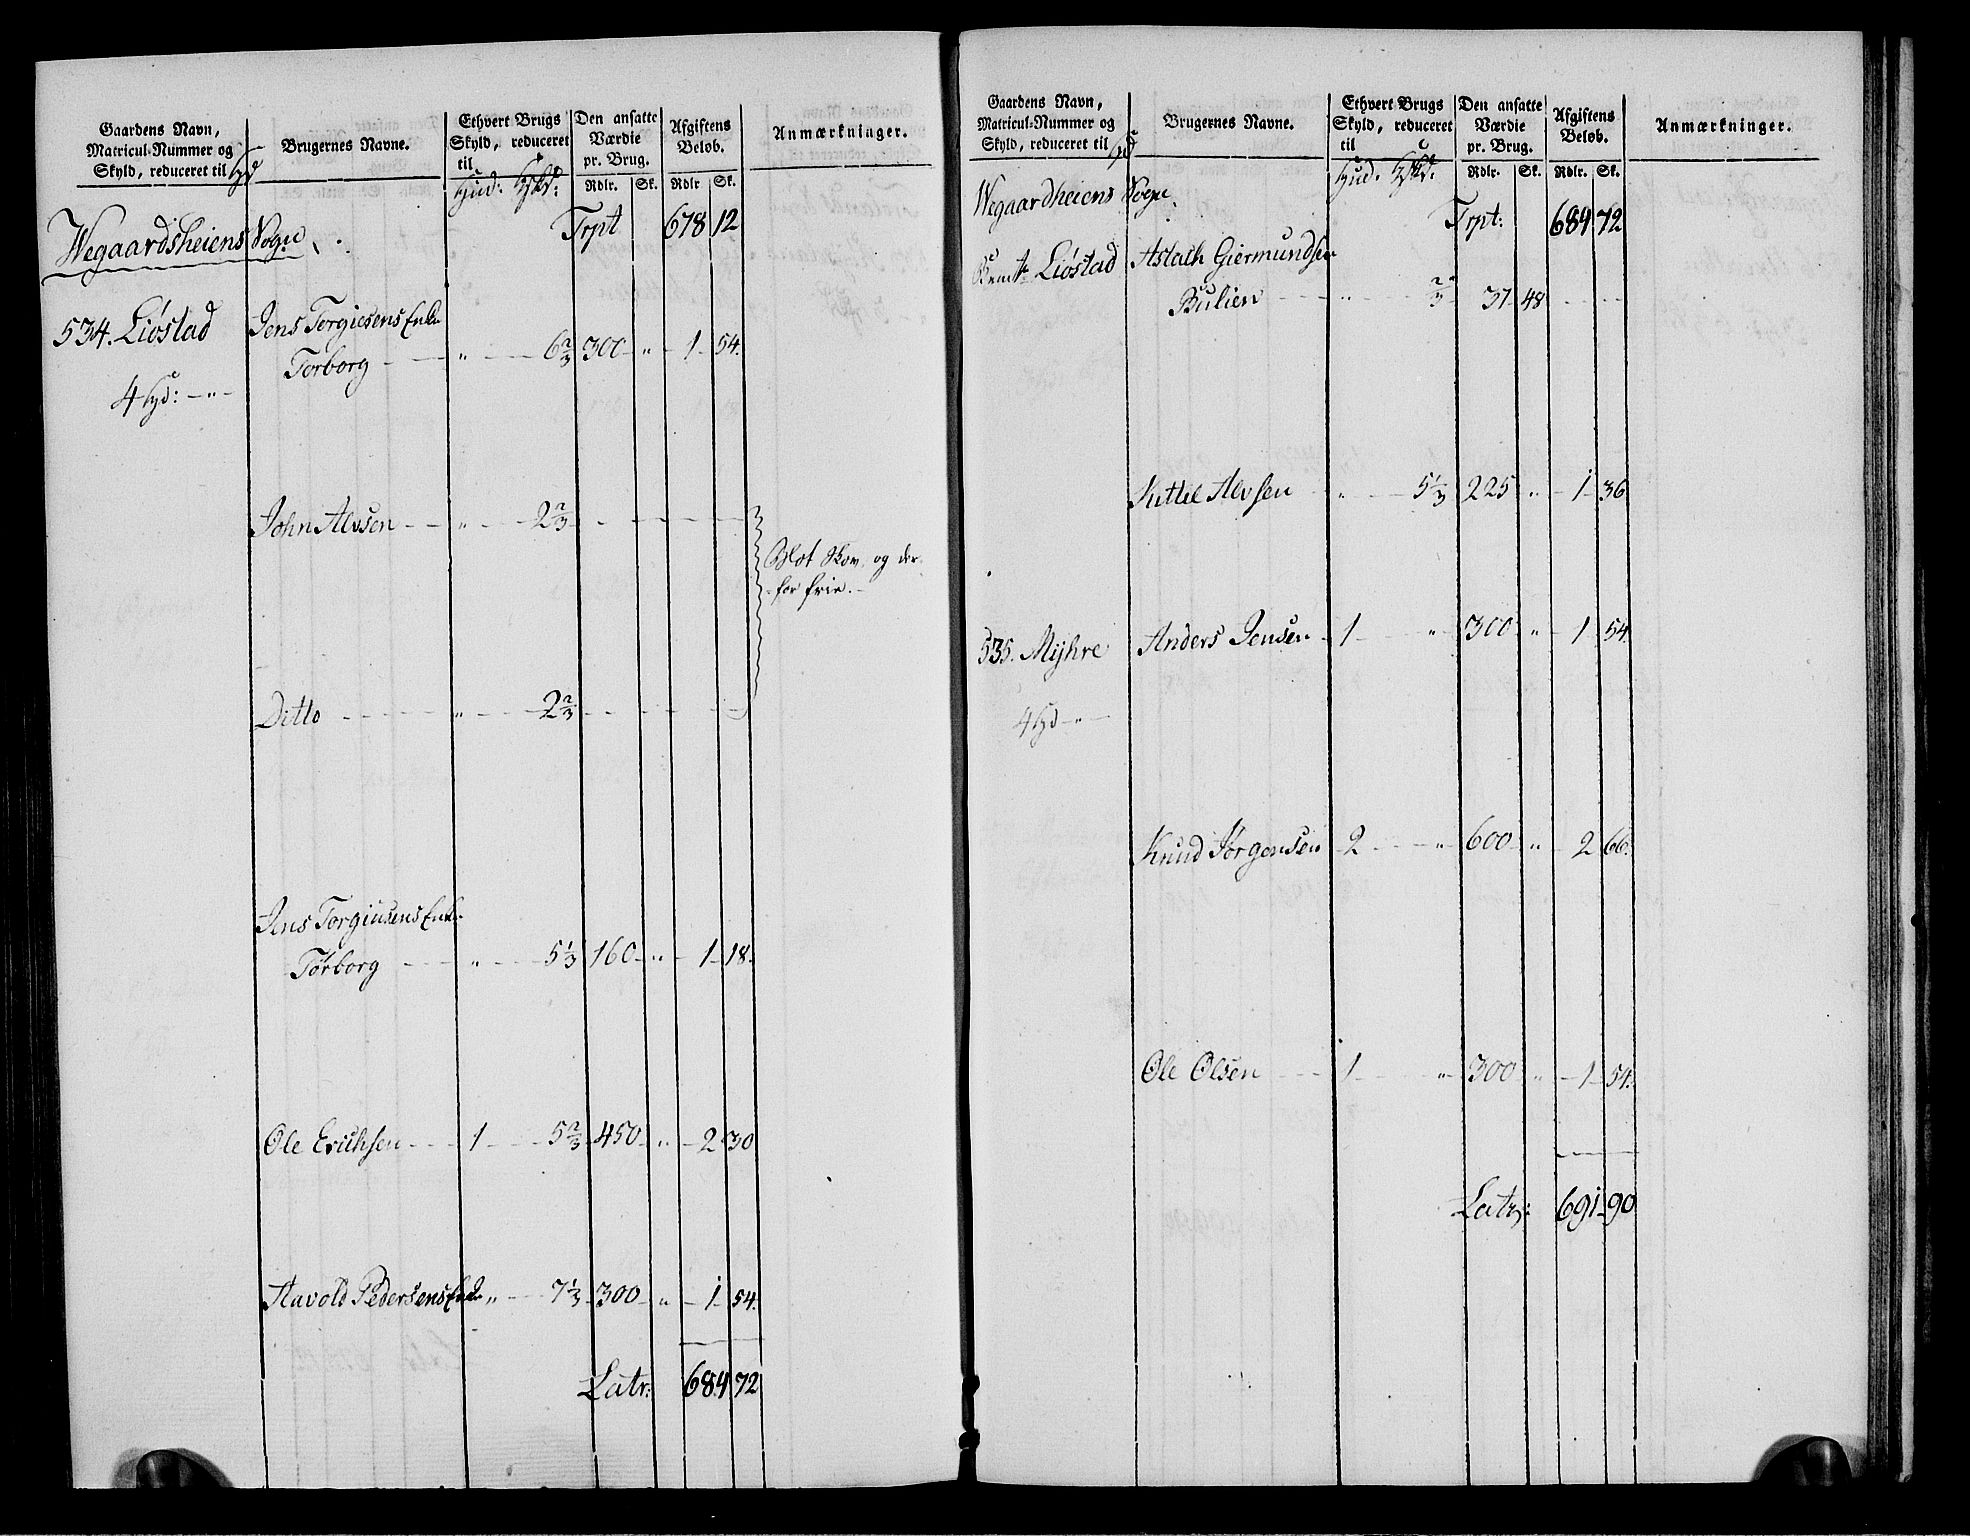 Gaardens Navn,
Matricul-Nummer og
Skyld, reduceret til
Brugernes Navne.
Ethvert Brugs
Skyld, reduceret
til
Den ansatte
Værdie
pr. Brug.
Rdlr. Sk.
Afgiftens
Beløb.
Rdlr Sk.
Anmærkninger.
Wegaardsheiens Sogn
Trpt 678 12
534. Liøstad Jens Torgiesens Enke
Torborg - - „ - - 6 2/3 300 „ 1 54.
4
John Alvsen - - „ - - 2 2/3 - - -
Blot Skov, og der
for frie.
Ditto - - - „ - - 2 2/3 - - -
Jens Torgiusens Enke
Torborg - - „ - - 5 1/3 160 „ 1 18.
Ole Erichsen - - 1 - - 5 2/3 450 „ 2 30
Havold Pedersens Enke „ - - 7 1/3 300 „ 1 54.
Latr: 684 72
Gaardens Navn,
Matricul-Nummer og
Skyld, reduceret til
Brugernes Navne.
Ethvert Brugs
Skyld, reduceret
til
Den ansatte
Værdie
pr. Brug.
Rdlr. Sk.
Afgiftens
Beløb.
Rdlr. Sk.
Anmærkninger.
Wegaardheiens Sogn.
Trpt: 684 72
Liøstad Aslath Giermundsen
Bulien - - „ - - 2/3 37 48 - -
Kittel Alvsen - „ - - 5 1/3 225 „ 1 36
535. Mijhre Anders Jensen 1 - - „ 300 „ 1 54.
4
Knud Jørgensen 2 - - „ 600 „ 2 66.
Ole Olsen - - 1 - - „ 300 „ 1 54.
Latr: 691 90